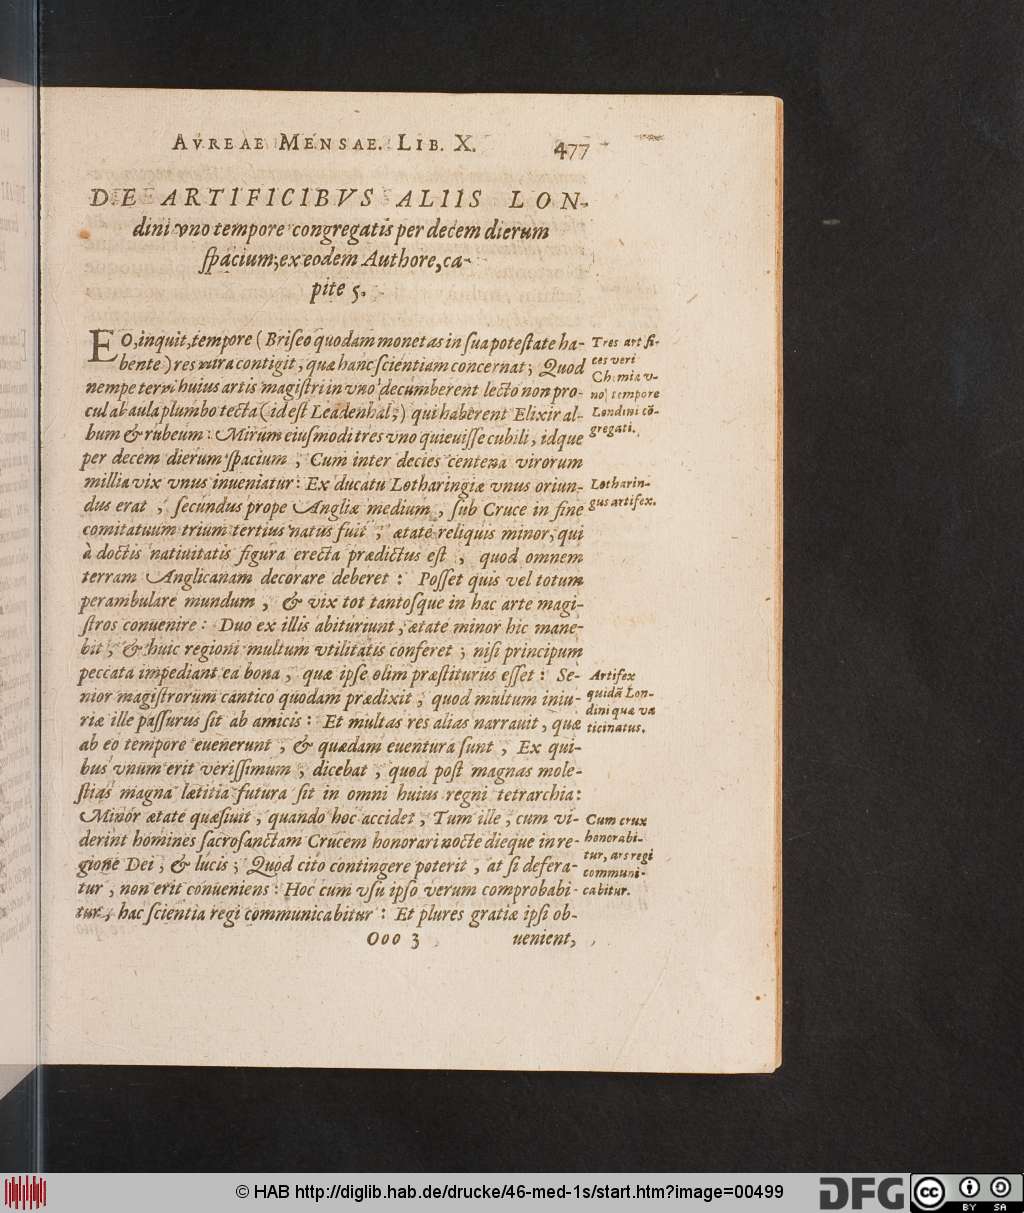 AVREAE MENSAE. LIB. X. 477
DE ARTIFICIBVS ALIIS LON-
dini vno tempore congregatis per decem dierum
ſpacium, ex eodem Authore, ca-
pite 5.
EO, inquit, tempore (Briſeo quodam monetas in ſua poteſtate ha-
bente) res mira contigit, quæ hanc ſcientiam concernat; Quod
nempe terni huius artis magiſtri in vno decumberent lecto non pro-
cul ab aula plumbo tecta (id eſt Leadenhal,) qui haberent Elixir al-
bum & rubeum: Mirum eiuſmodi tres vno quieuiſſe cubili, idque
per decem dierum ſpacium, Cum inter decies centena virorum
millia vix vnus inueniatur: Ex ducatu Lotharingiæ vnus oriun-
dus erat, ſecundus prope Angliæ medium, ſub Cruce in fine
comitatuum trium tertius natus fuit, ætate reliquis minor, qui
à doctis natiuitatis figura erecta prædictus eſt, quod omnem
terram Anglicanam decorare deberet: Poſſet quis vel totum
perambulare mundum, & vix tot tantoſque in hac arte magi-
ſtros conuenire: Duo ex illis abituriunt, ætate minor hic mane-
bit, & huic regioni multum vtilitatis conferet; niſi principum
peccata impediant ea bona, quæ ipſe olim præſtiturus eſſet: Se-
nior magiſtrorum cantico quodam prædixit, quod multum iniu-
riæ ille paſſurus ſit ab amicis: Et multas res alias narrauit, quæ
ab eo tempore euenerunt, & quædam euentura ſunt, Ex qui-
bus vnum erit veriſſimum, dicebat, quod poſt magnas mole-
ſtias magna lætitia futura ſit in omni huius regni tetrarchia:
Minor ætate quæſiuit, quando hoc accidet, Tum ille, cum vi-
derint homines ſacroſanctam Crucem honorari nocte dieque in re-
gione Dei, & lucis; Quod cito contingere poterit, at ſi defera-
tur, non erit conueniens: Hoc cum vſu ipſo verum comprobabi-
tur, hac ſcientia regi communicabitur: Et plures gratiæ ipſi ob-
Ooo 3 uenient,
Tres artifi-
ces veri
Chemia v-
no tempore
Londini cō-
gregati.
Lotharin-
gus artifex.
Artifex
quidā Lon-
dini quæ va
ticinatus.
Cum crux
honorabi-
tur, ars regi
communi-
cabitur.
© HAB http://diglib.hab.de/drucke/46-med-1s/start.htm?image=00499
DFG
cc BY SA